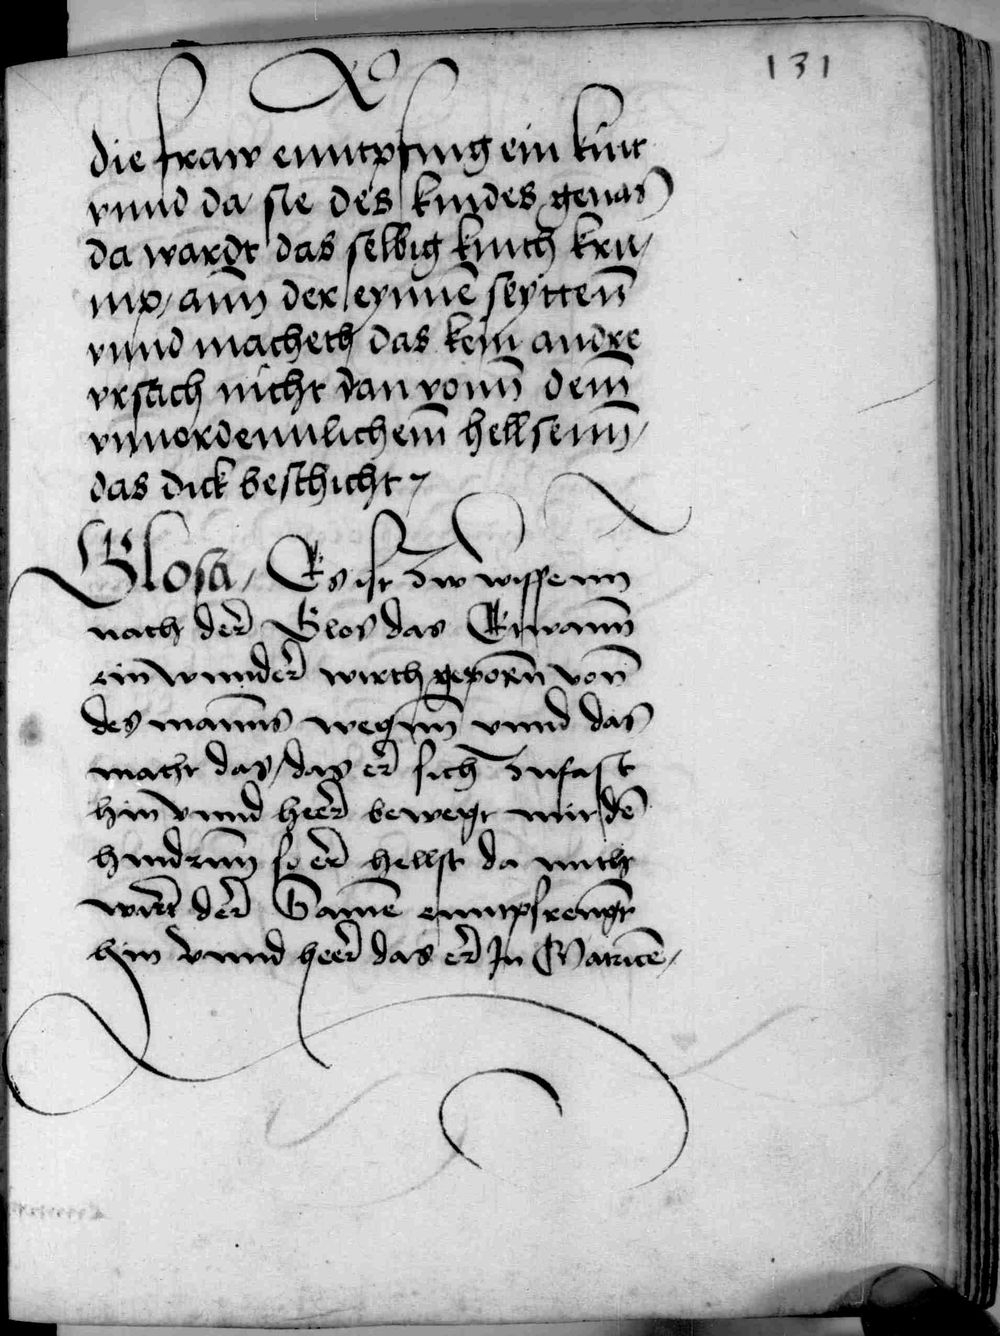 131
die fraw enntpfing ein kint
vnnd da sie des kindes genas
da wardt das selbig kinth kru/
mp / ann der eynnē seyttenn
vnnd macheth das kein andre
vrsach nicht dan vonn dem̄
vnnordennlichem̄ hellsenn /
das dick beschicht /
Glosa / Es ist zw wissenn
nach der Glos das Etwann
ein wunder wirth geporn von
des manns wegenn vnnd das
macht das / das er sich zufast
hin vnnd heer bewegt mit dē
hindrnn so er hellst da mith
wirt der Samē enntpfrengt
hin vnnd heer das er Jn Matricē /